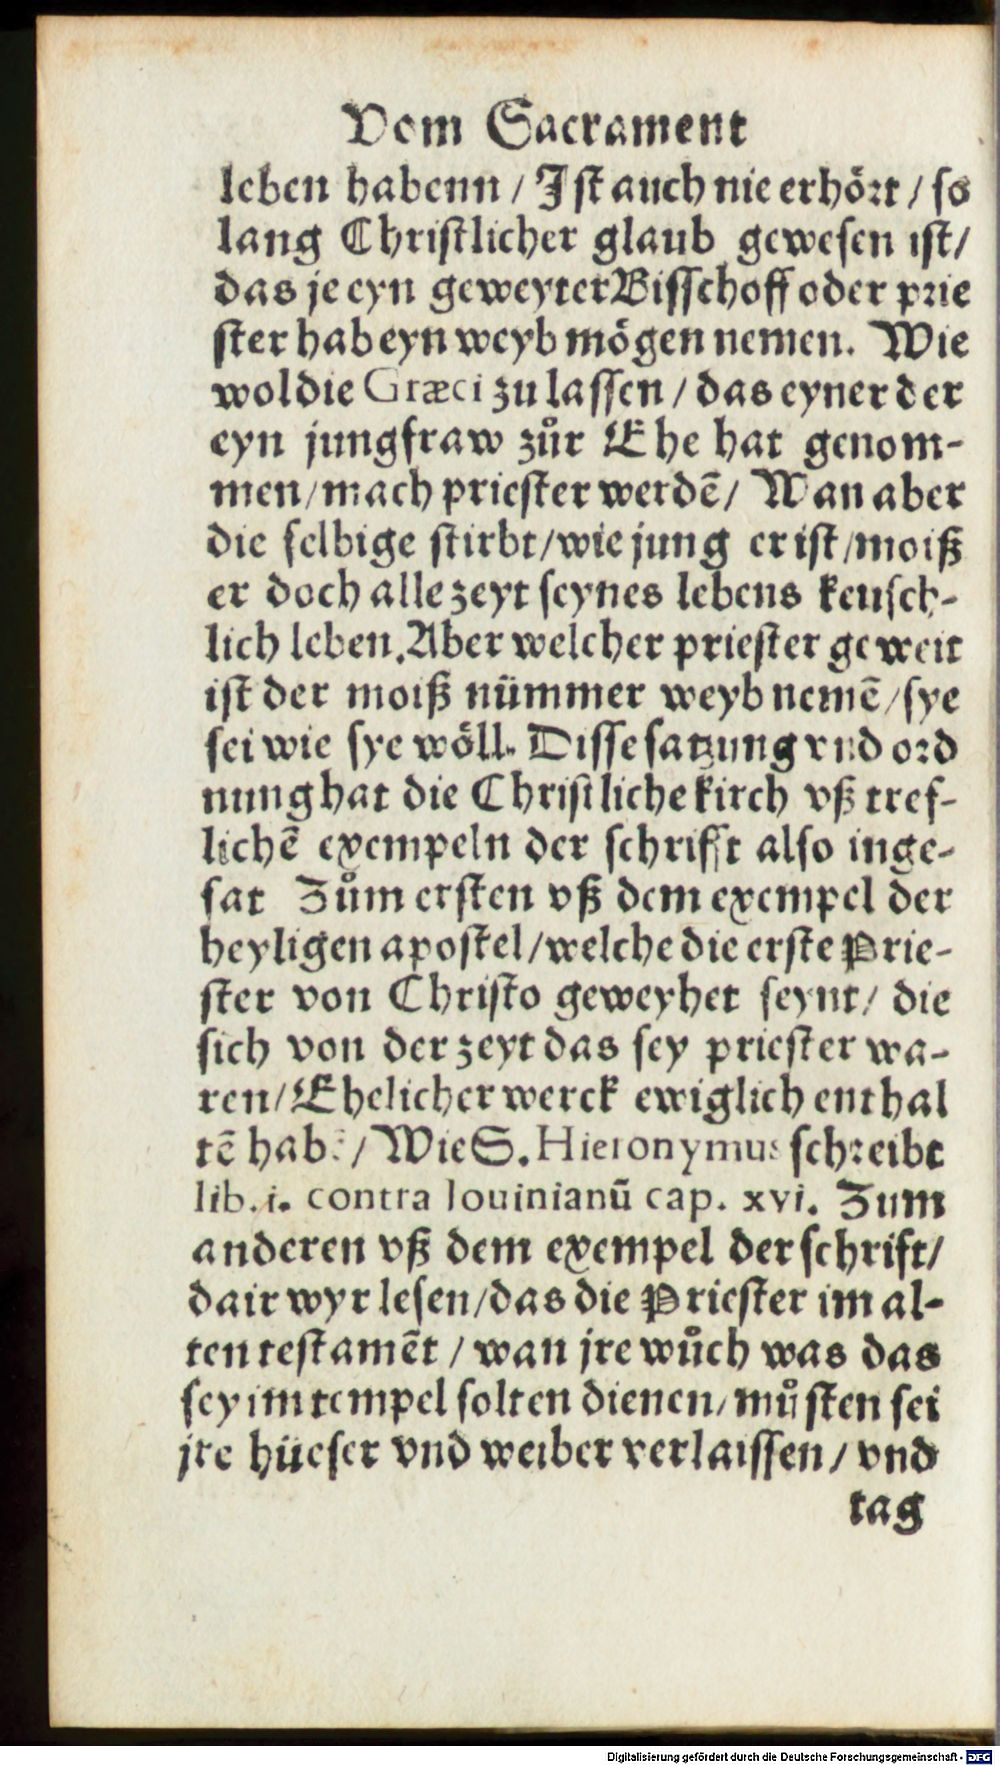 Vom Sacrament
leben habenn / Ist auch nie erhört / so
lang Christlicher glaub gewesen ist /
das je eyn geweyter Bisschoff oder prie
ster hab eyn weyb mögen nemen. Wie
wol die Græci zu lassen / das eyner der
eyn jungfraw zůr Ehe hat genom-
men / mach priester werdē / Wan aber
die selbige stirbt / wie jung er ist / moiß
er doch alle zeyt seynes lebens keusch-
lich leben. Aber welcher priester geweit
ist der moiß nümmer weyb nemē / sye
sei wie sye wöll. Disse satzung vnd ord
nung hat die Christliche kirch vß tref-
lichē exempeln der schrifft also inge-
sat Zům ersten vß dem exempel der
heyligen apostel / welche die erste Prie-
ster von Christo geweyhet seynt / die
sich von der zeyt das sey priester wa-
ren / Ehelicher werck ewiglich enthal
tē habē / Wie S. Hieronymus schreibt
lib. i. contra Iouinianū cap. xvi. Zum
anderen vß dem exempel der schrift /
dair wyr lesen / das die Priester im al-
ten testamēt / wan jre wůch was das
sey im tempel solten dienen / můsten sei
jre hüeser vnd weiber verlaissen / vnd
tag
Digitalisierung gefördert durch die Deutsche Forschungsgemeinschaft - DFG